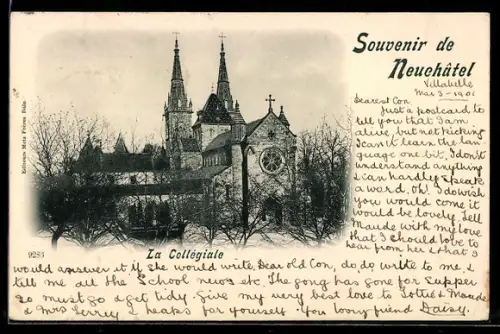 Souvenir de
Neuchâtel
Villabelle
Mai 3 - 1901
Dearest Con,
Just a postcard to
tell you that I am
alive, but not kicking
I can't learn the lan-
guage one bit, I don't
understand anything
I can hardly speak
a word. Oh! I do wish
you would come it
would be lovely, Tell
Maude with my love
that I should love to
hear from her & that I
would answer it if she would write, Dear old Con, do, do write to me, &
tell me all the School news etc. The gong has gone for supper
so must go & get tidy. Give my very best love to Lottie & Maude
& Mrs & heaps for yourself. Your loving friend Daisy.
La Collégiale
9283
Editeurs Metz Frères Bâle